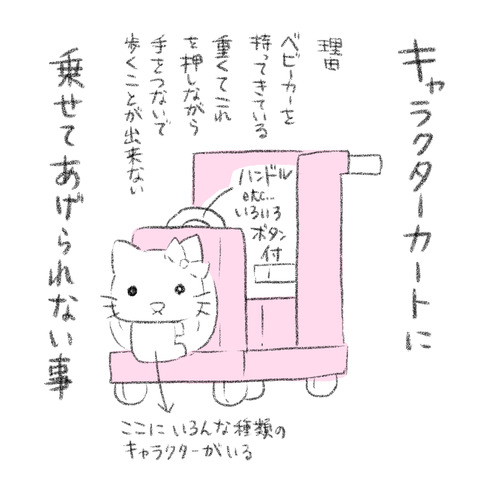 キャラクターカートに
乗せてあげられない事
理由
ベビーカーを
持ってきている
重くてこれ
を押しながら
手をつないで
歩くことが出来ない
ハンドル
etc...
いろいろ
ボタン
付
ここにいろんな種類の
キャラクターがいる